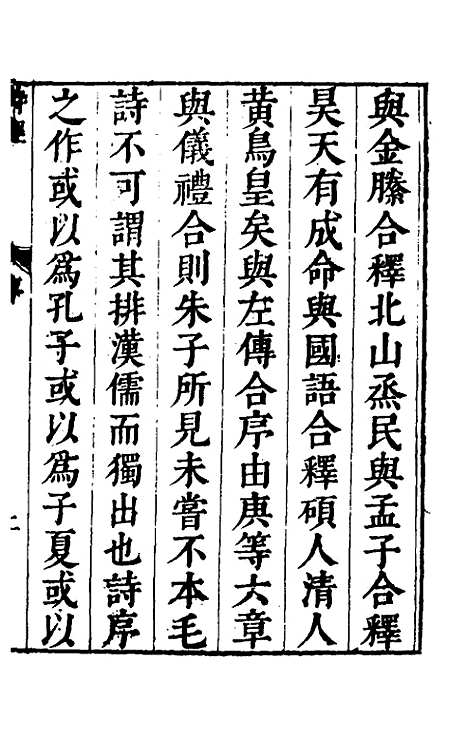 與金縢合釋北山烝民與孟子合釋
昊天有成命與國語合釋碩人清人
黄鳥皇矣與左傳合序由庚等六章
與儀禮合則朱子所見未嘗不本毛
詩不可謂其排漢儒而獨出也詩序
之作或以爲孔子或以爲子夏或以